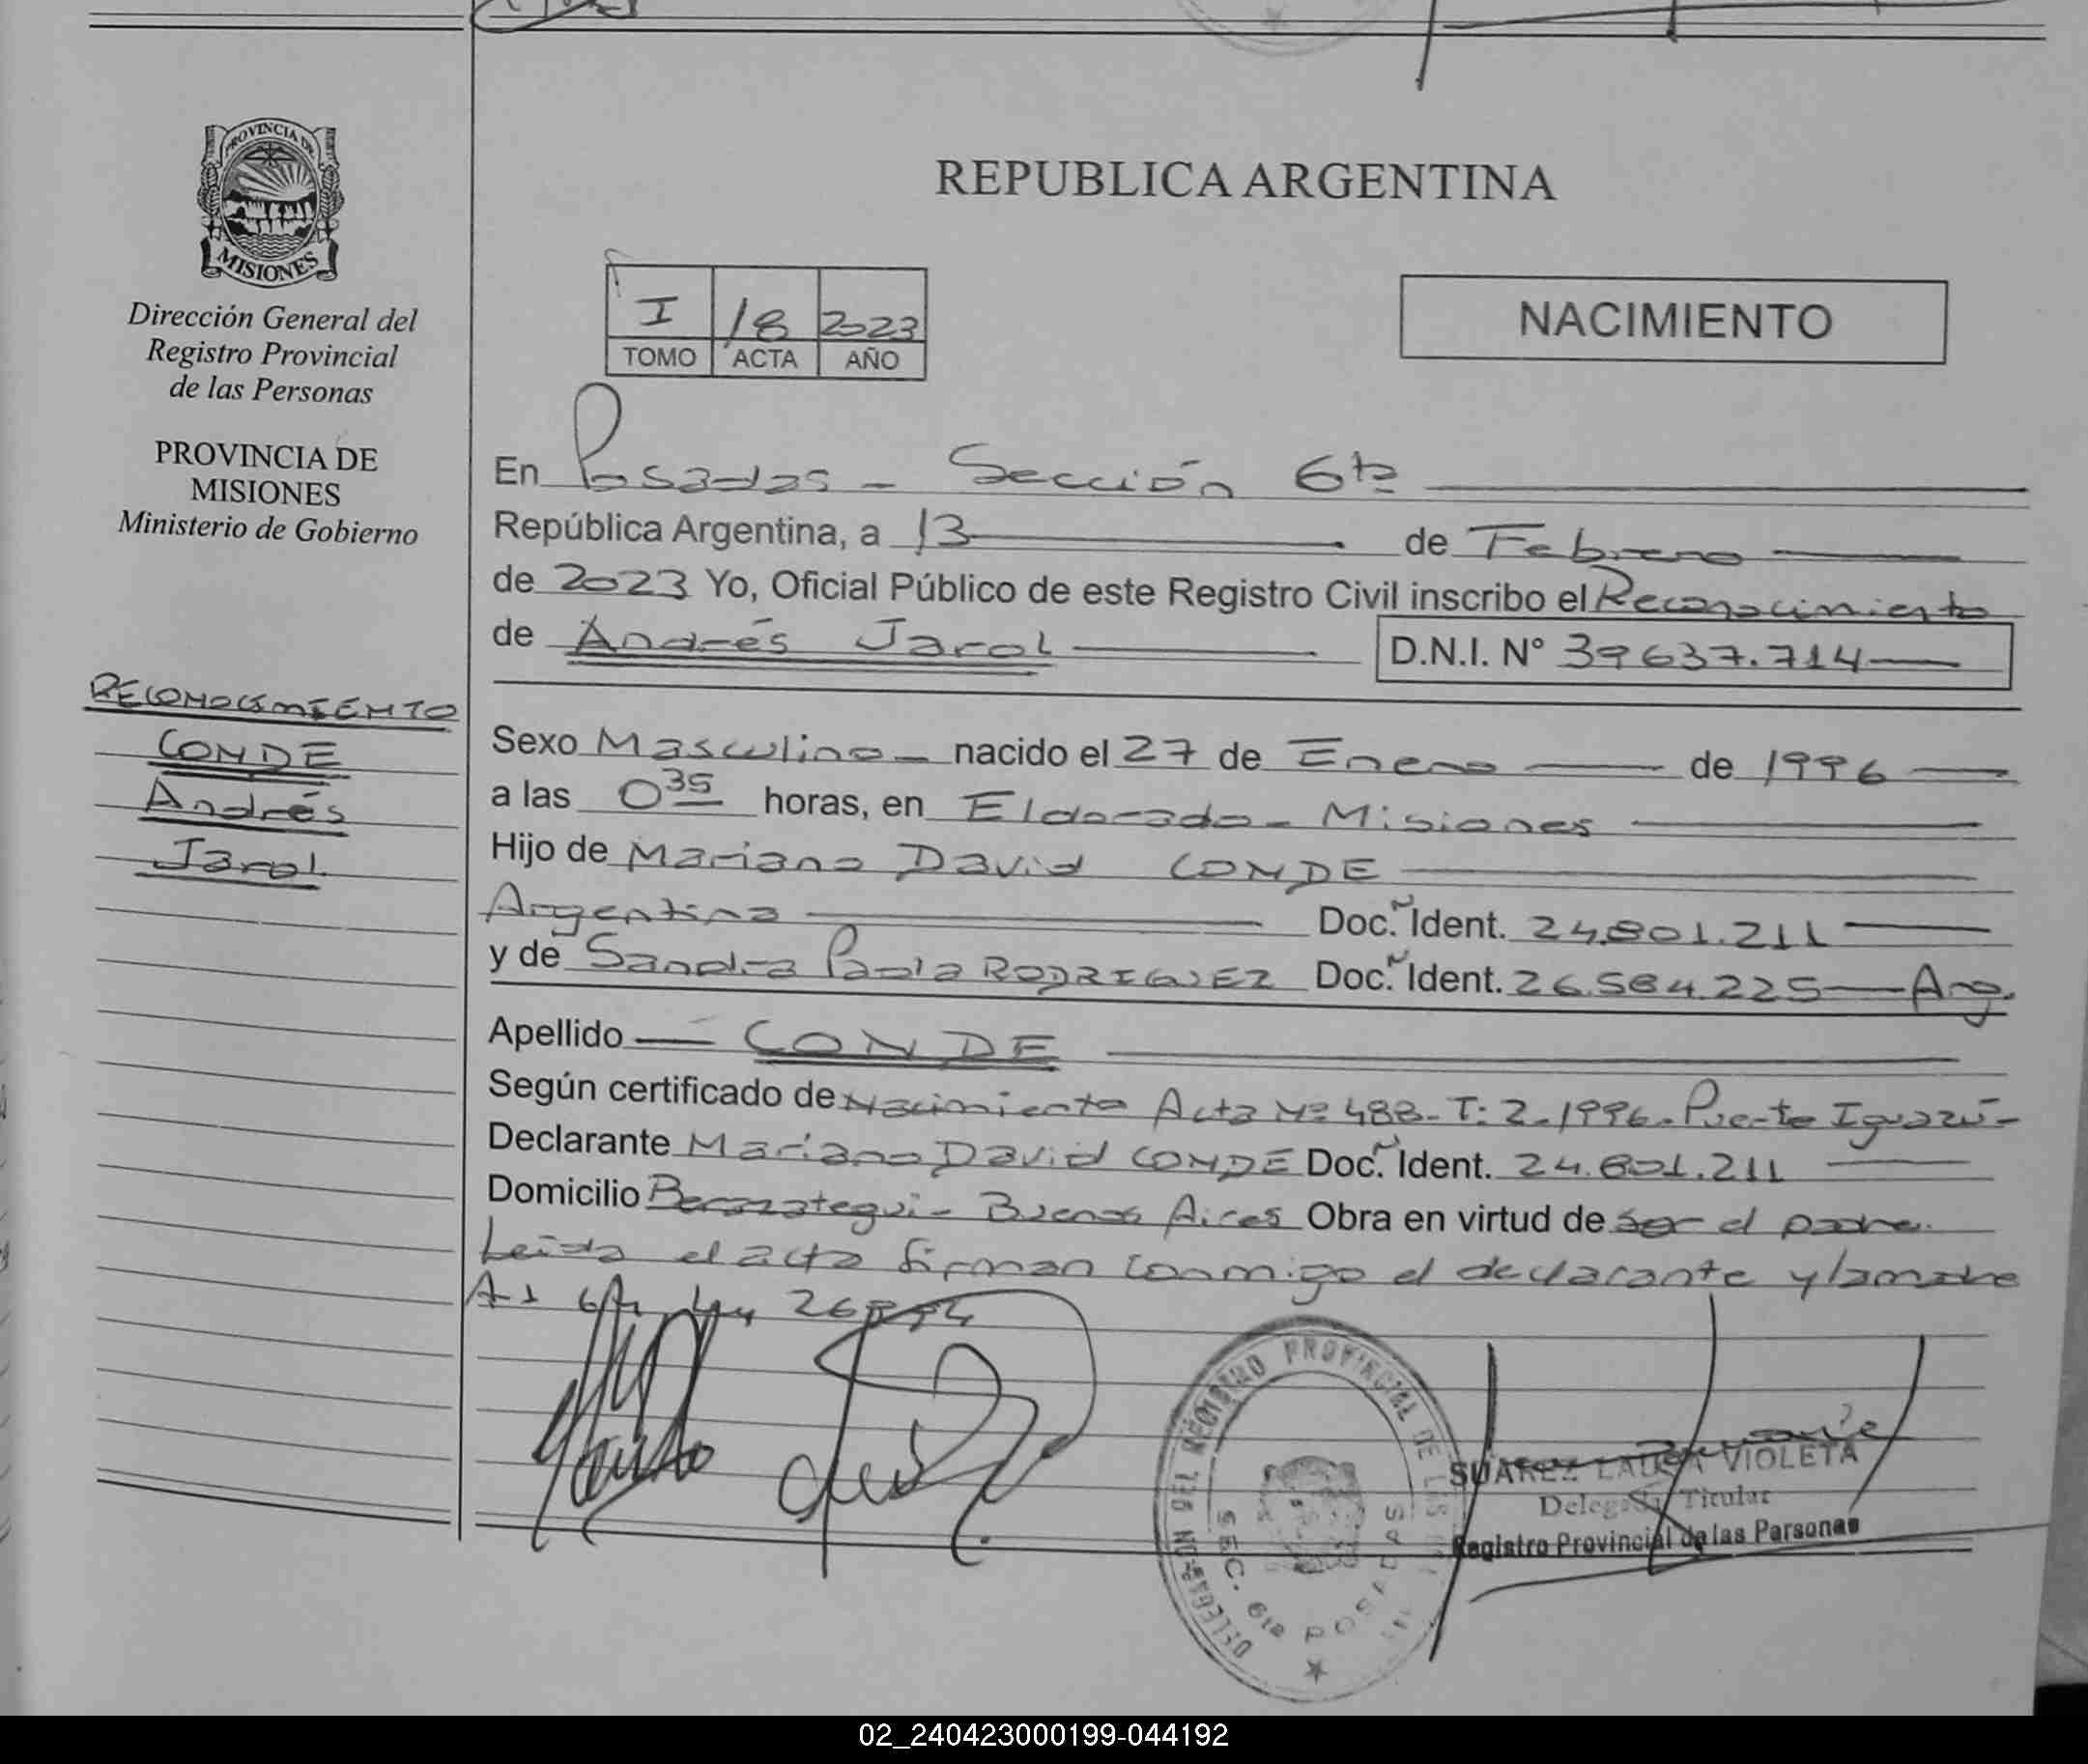 PROVINCIA DE
MISIONES
Dirección General del
Registro Provincial
de las Personas
PROVINCIA DE
MISIONES
Ministerio de Gobierno
RECONOCIMIENTO
CONDE
Andrés
Jarol
REPUBLICA ARGENTINA
I 18 2023
TOMO ACTA AÑO
NACIMIENTO
En Posadas - Sección 6ta
República Argentina, a 13 de Febrero
de 2023 Yo, Oficial Público de este Registro Civil inscribo el Reconocimiento
de Andrés Jarol D.N.I. N° 39637.714
Sexo Masculino nacido el 27 de Enero de 1996
a las 0 35 horas, en Eldorado - Misiones
Hijo de Mariano David CONDE
Argentina Doc. Ident. 24.801.211
y de Sandra Paola RODRIGUEZ Doc. Ident. 26.584.225 Arg.
Apellido CONDE
Según certificado de Nacimiento Acta Nº 488 - T: 2 - 1996 - Puerto Iguazú -
Declarante Mariano David CONDE Doc. Ident. 24.801.211
Domicilio Berazategui - Buenos Aires Obra en virtud de ser el padre.
Leida el acta firman conmigo el declarante y la madre
26
DELEGACION DEL REGISTRO PROVINCIAL DE LAS
SEC. 6ta POSADAS
SUAREZ LAURA VIOLETA
Delegada Titular
Registro Provincial de las Personas
02_240423000199-044192